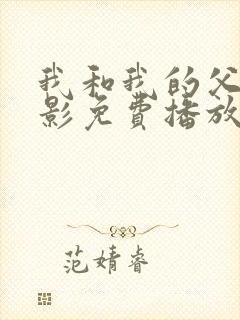 我和我的父
影免费播放
范婧睿